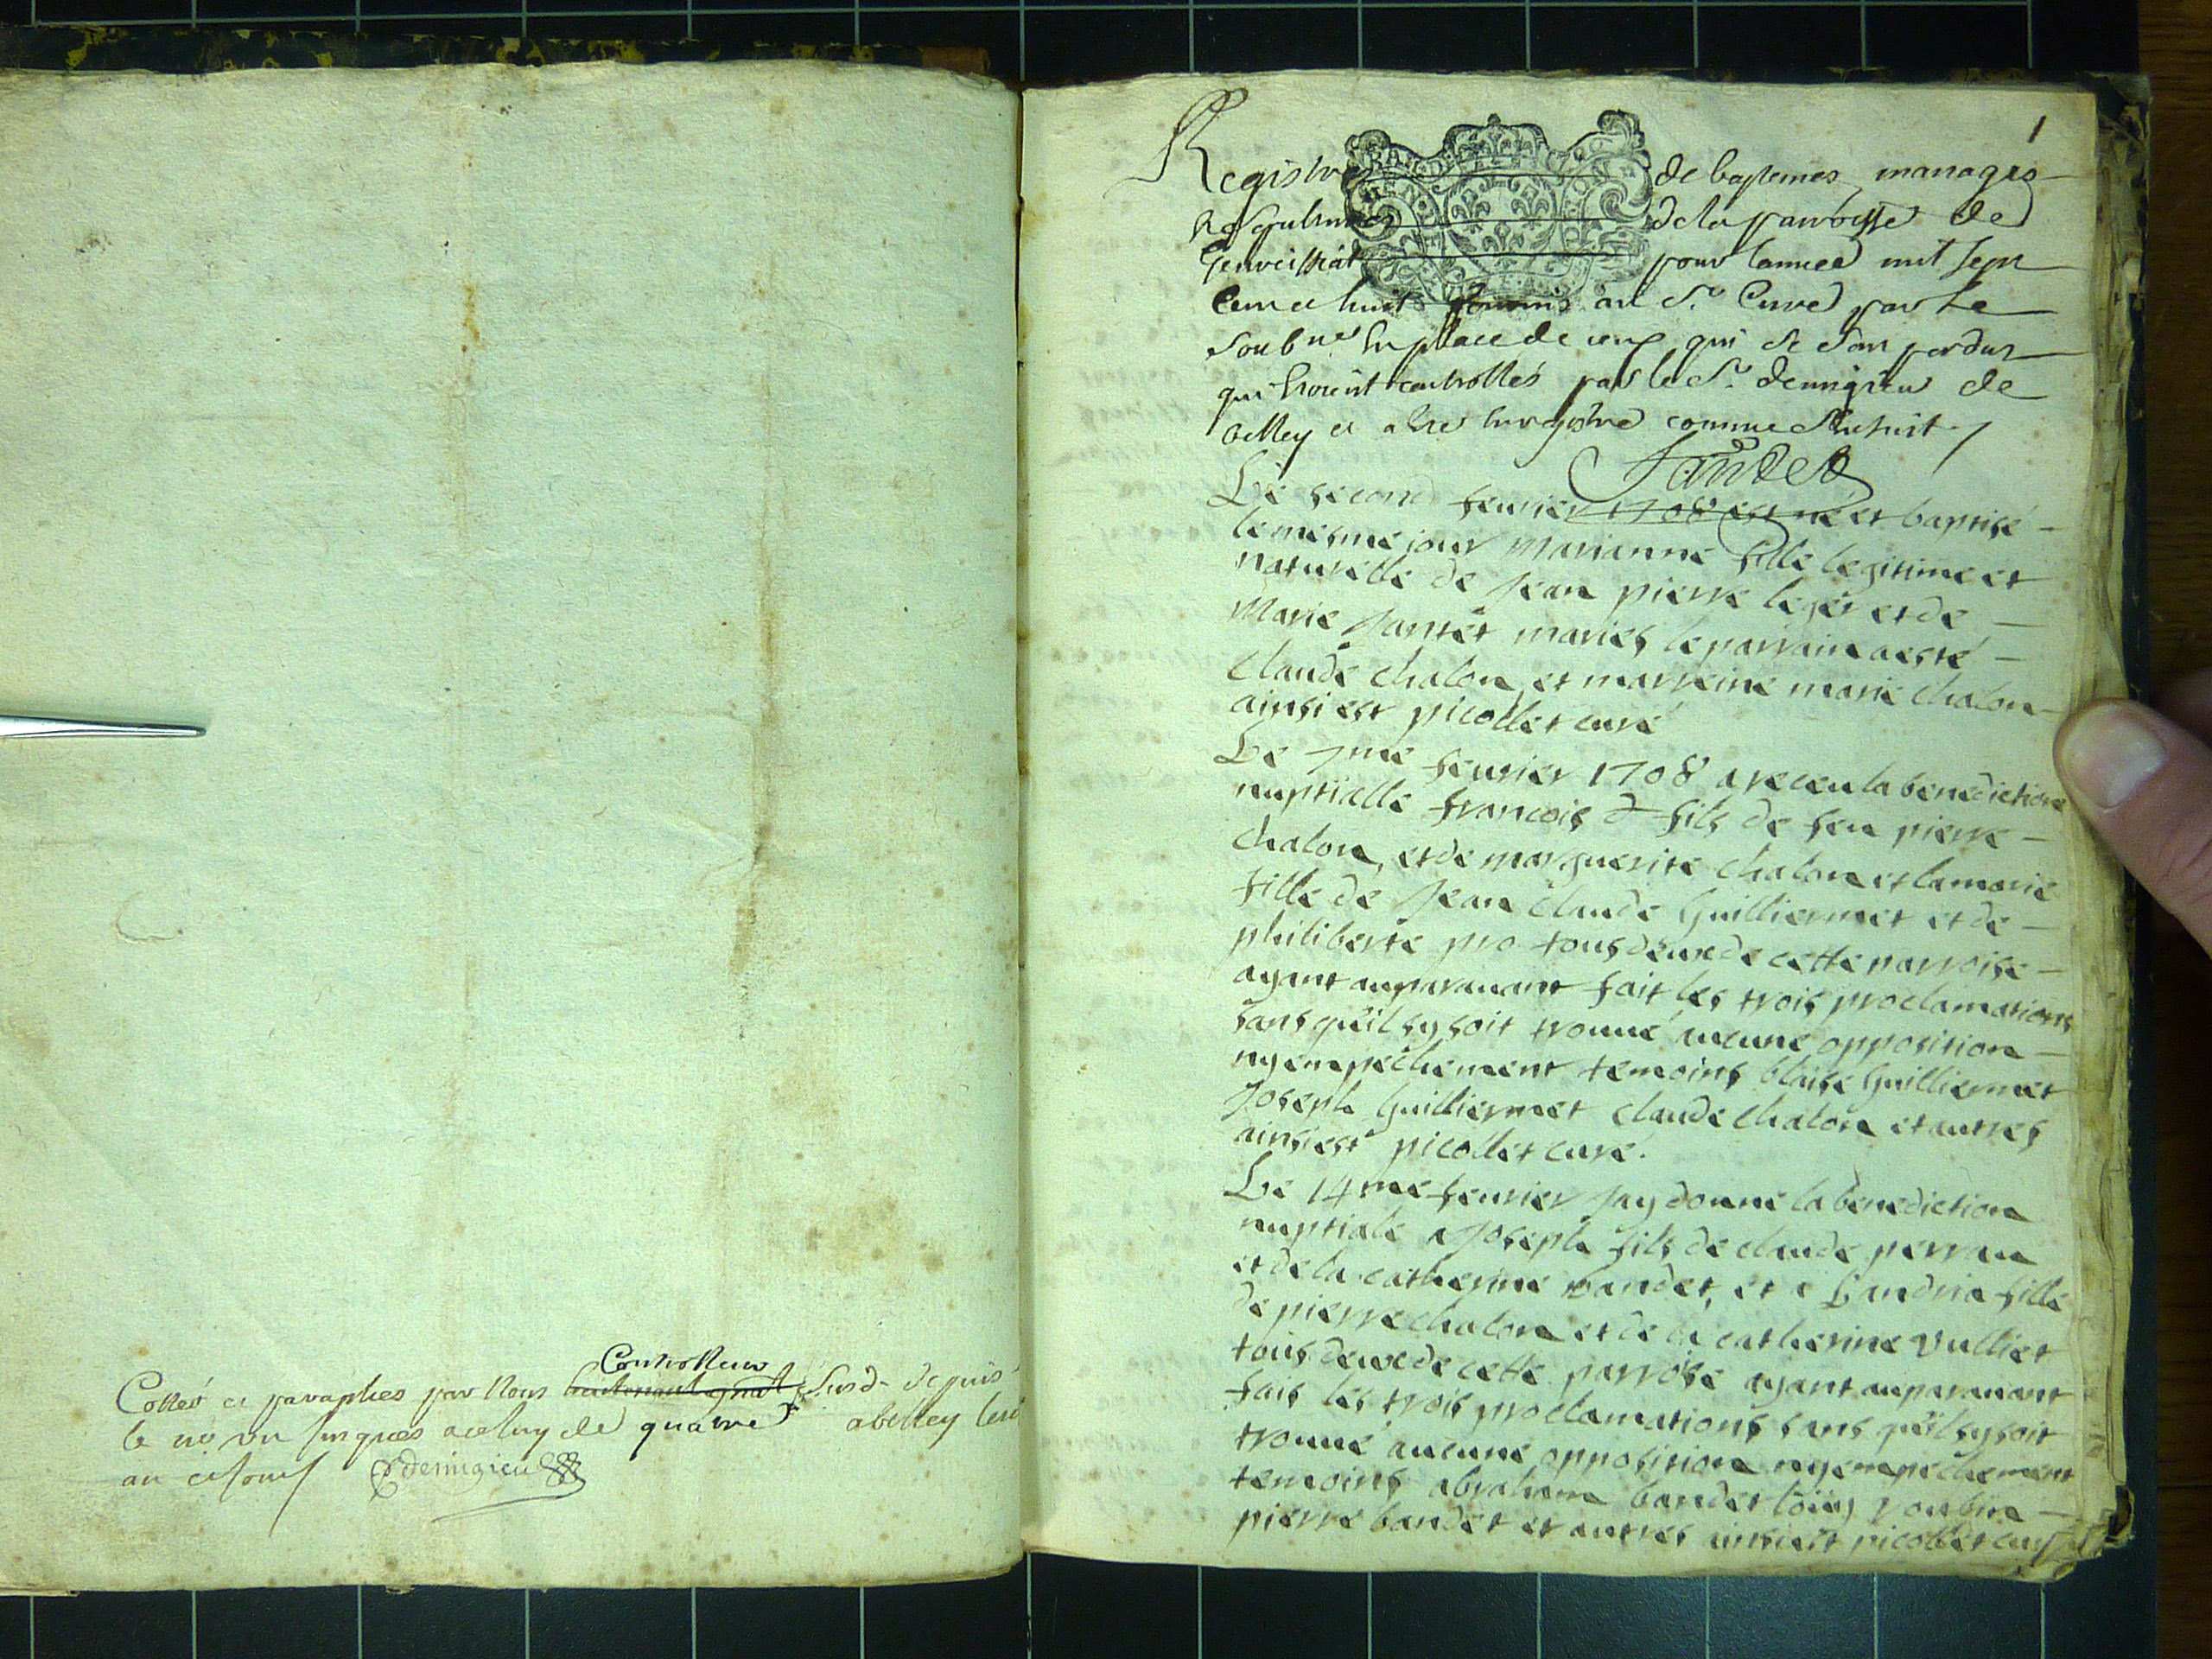 Cottés et paraphes par Nous Controlleur lieutenant gnal susd. depuis
le nô un jusques a celuy de quatre a belley les
an et jour Demigieu
1
Registre de baptemes mariages
et sepultures de la parroisse de
pour lannée mil sept
cent et huit fournis au Sr. Curé par Le
soubné En place de ceux qui se sont perdus
qui Etoient controllés par le Sr. demigieu de
belley et a Etre Enregistré comme Sensuit
Le second feurier 1708 est né et baptisé
le mesme jour marianne fille legitime et
naturelle de Jean pierre leger et de
Marie Jantet mariés le parrain a esté
Claude Chalon, et marreine marie Chalon
ainsi est picollet curé
Le 7me feurier 1708 a receu la benediction
nuptialle francois fils de feu pierre
Chalon, et de marguerite Chalon et la marie
fille de Jean Claude Guilliermet et de
philiberte pro tous deux de cette parroise
ayant auparauant fait les trois proclamations
sans quil sy soit trouué aucune opposition
ny empechement temoins blaise Guilliermet
Joseph Guilliermet Claude Chalon et autres
ainsi est picollet curé.
Le 14me feurier Jay donné la benediction
nuptiale a Joseph fils de claude perran
et de la catherine bandet, et a Landria fille
de pierre chalon et de la catherine Vulliet
tous deux de cette parroise ayant auparauant
fais les trois proclamations sans quil sy soit
trouué aucune opposition ny empechement
temoins abraham bandet
pierre bandet et autres ainsi est picollet curé